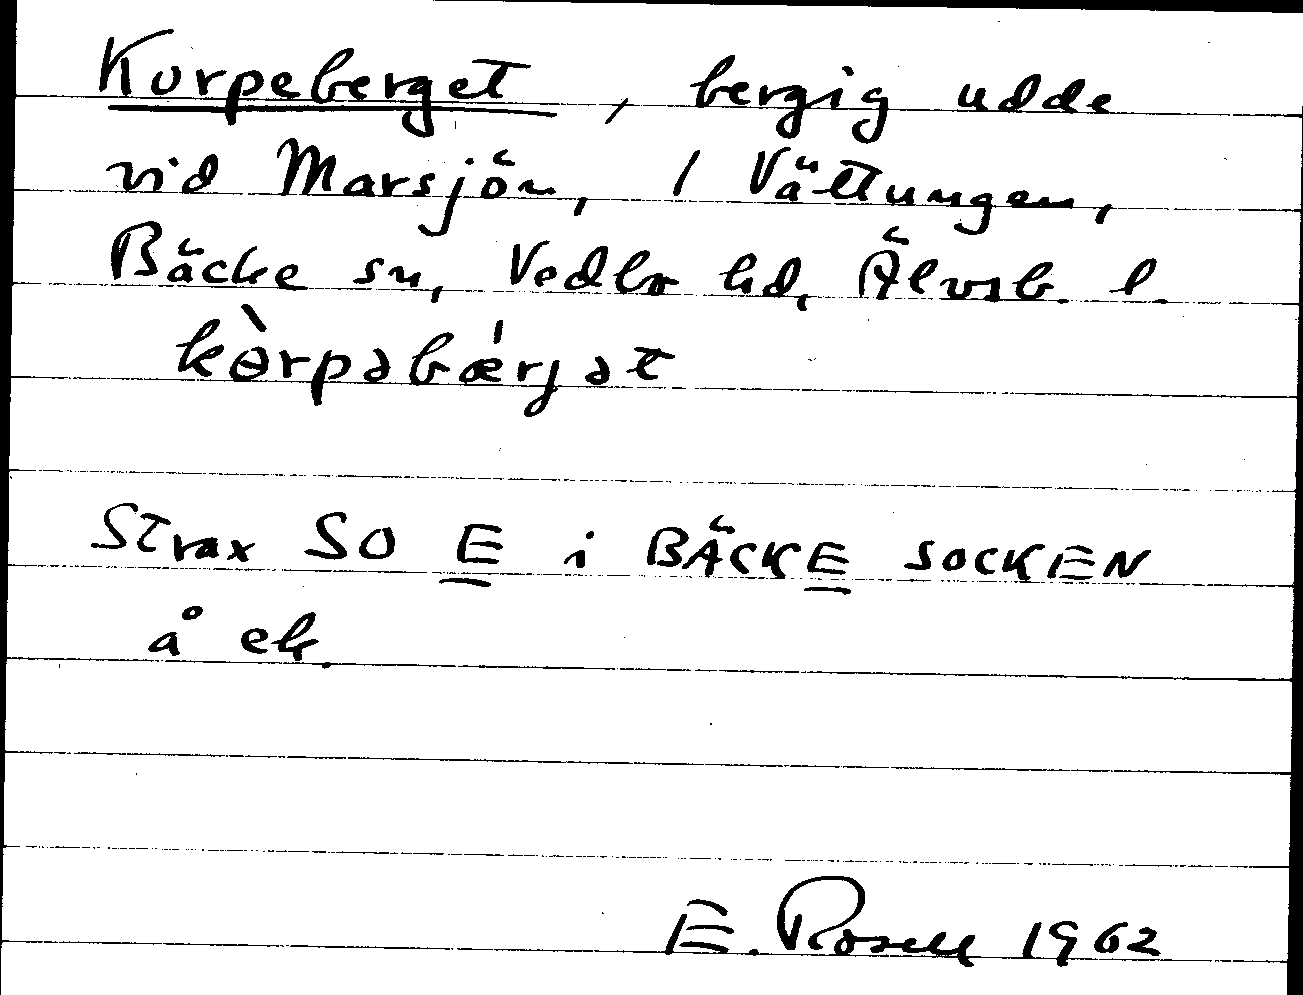 Korpeberget, bergig udde
vid Marsjön, / Vättungen,
Bäcke sn, Vedbo hd, Älvsb. l.
kɵ̀rpəbǽrjət
Strax SO E i BÄCKE SOCKEN
å ek.
E. Rosell 1962